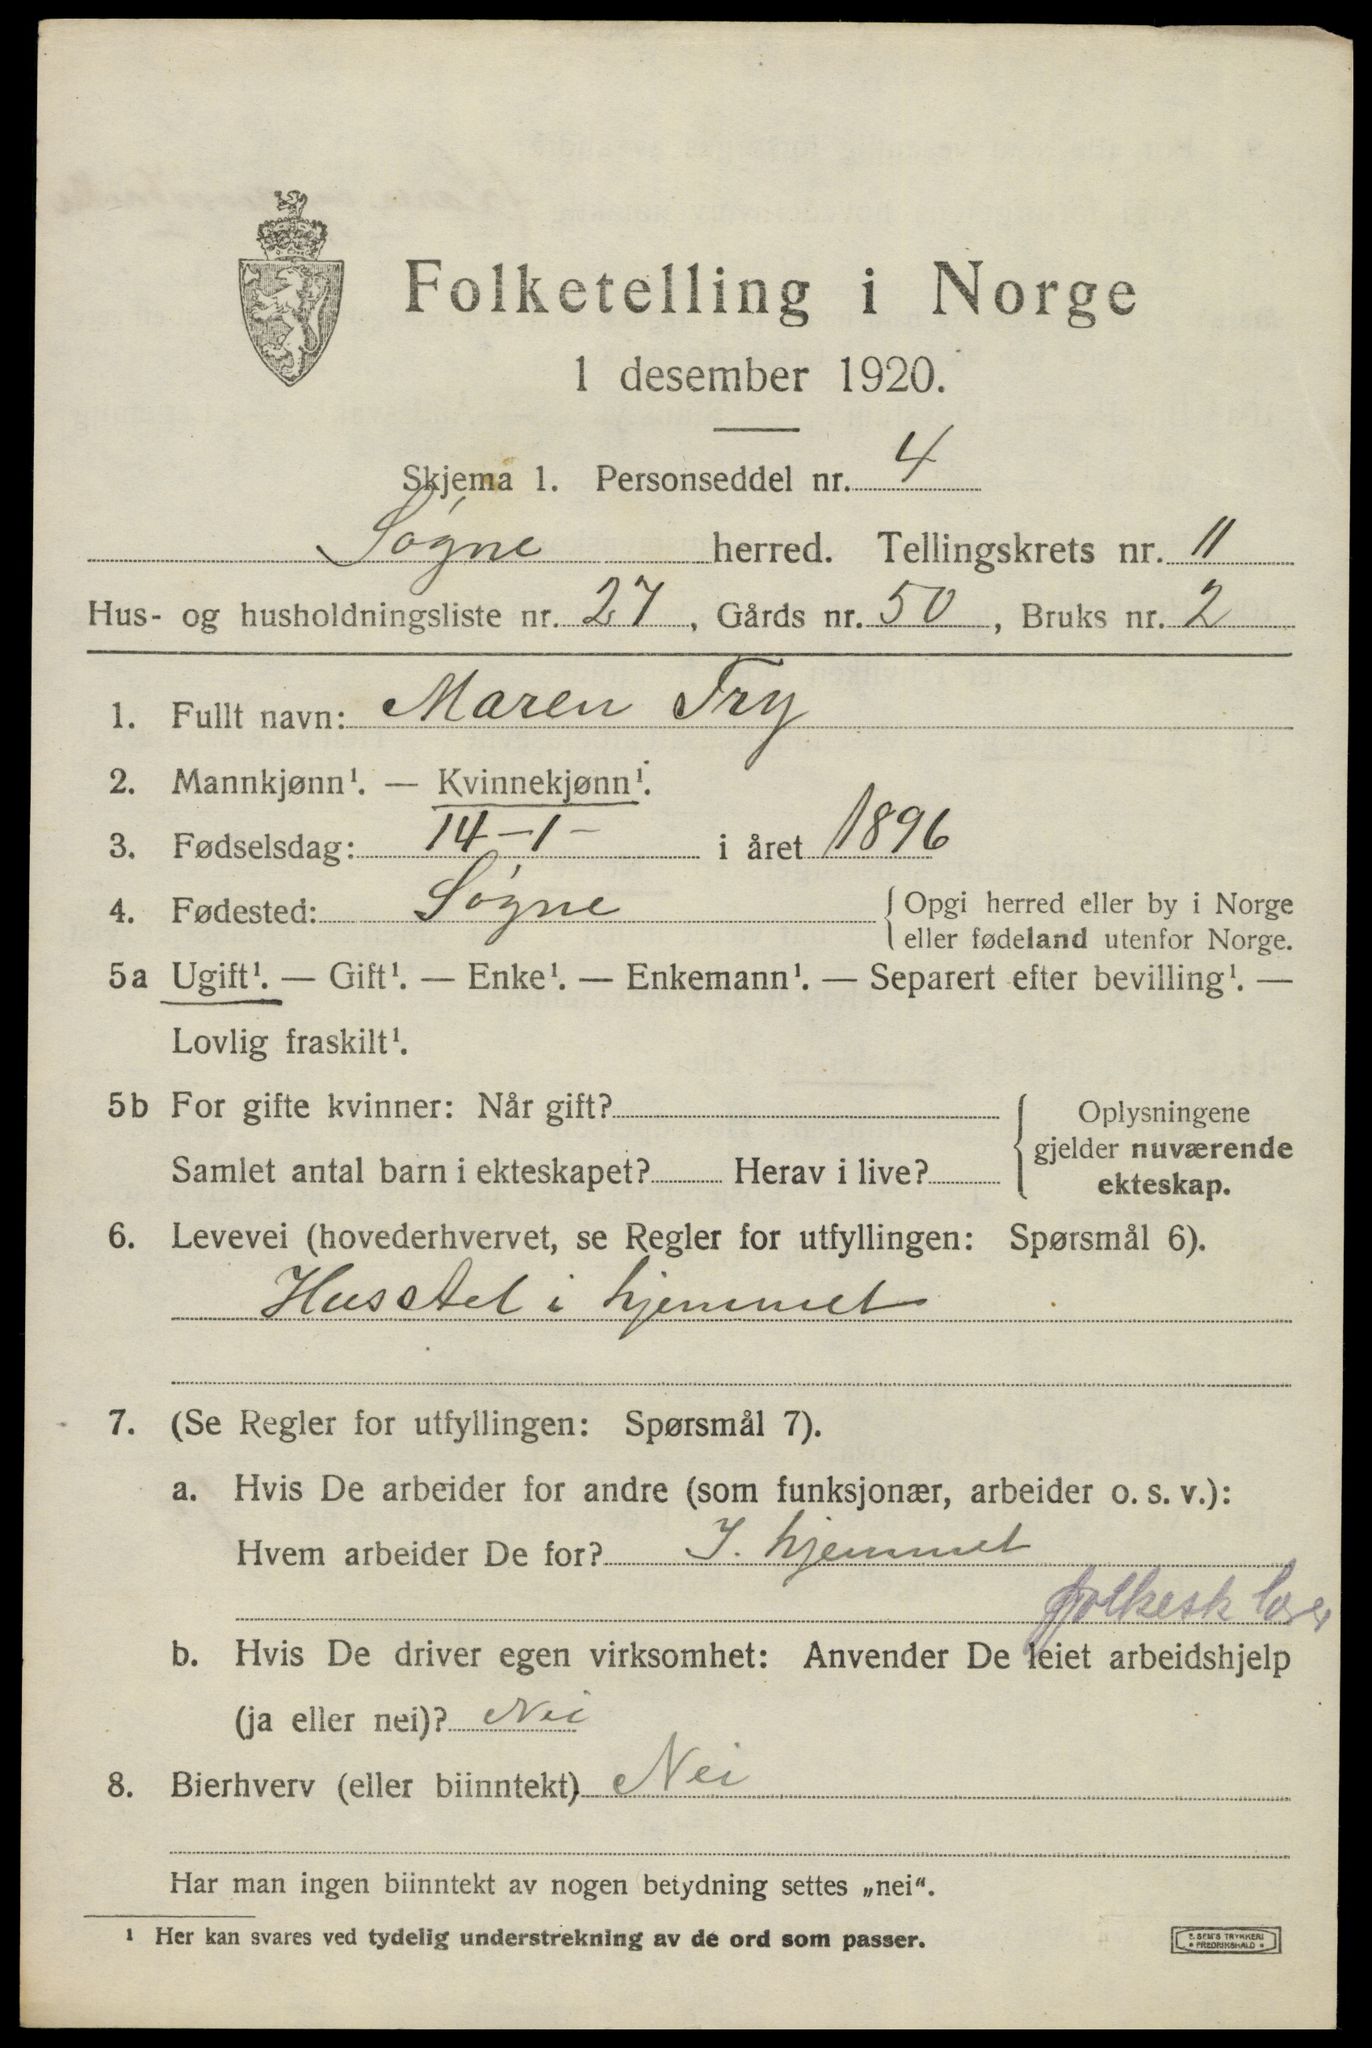 Folketelling i Norge
1 desember 1920.
Skjema 1. Personseddel nr. 4
Søgne herred. Tellingskrets nr. 11
Hus- og husholdningsliste nr. 27, Gårds nr. 50, Bruks nr. 2
1. Fullt navn: Maren Try
2. Mannkjønn¹. — Kvinnekjønn¹.
3. Fødselsdag: 14-1- i året 1896
4. Fødested: Søgne { Opgi herred eller by i Norge
eller fødeland utenfor Norge.
5a Ugift¹. — Gift¹. — Enke¹. — Enkemann¹. — Separert efter bevilling¹. —
Lovlig fraskilt¹.
5b For gifte kvinner: Når gift? { Oplysningene
gjelder nuværende
Samlet antal barn i ekteskapet? Herav i live?
ekteskap.
6. Levevei (hovederhvervet, se Regler for utfyllingen: Spørsmål 6).
Husstel i hjemmet
7. (Se Regler for utfyllingen: Spørsmål 7).
a. Hvis De arbeider for andre (som funksjonær, arbeider o. s. v.):
Hvem arbeider De for? I. hjemmet
folkesk
b. Hvis De driver egen virksomhet: Anvender De leiet arbeidshjelp
(ja eller nei)? Nei
8. Bierhverv (eller biinntekt) Nei
Har man ingen biinntekt av nogen betydning settes „nei“.
¹ Her kan svares ved tydelig understrekning av de ord som passer.
E. SEM'S TRYKKERI
• FREDRIKSHALD •